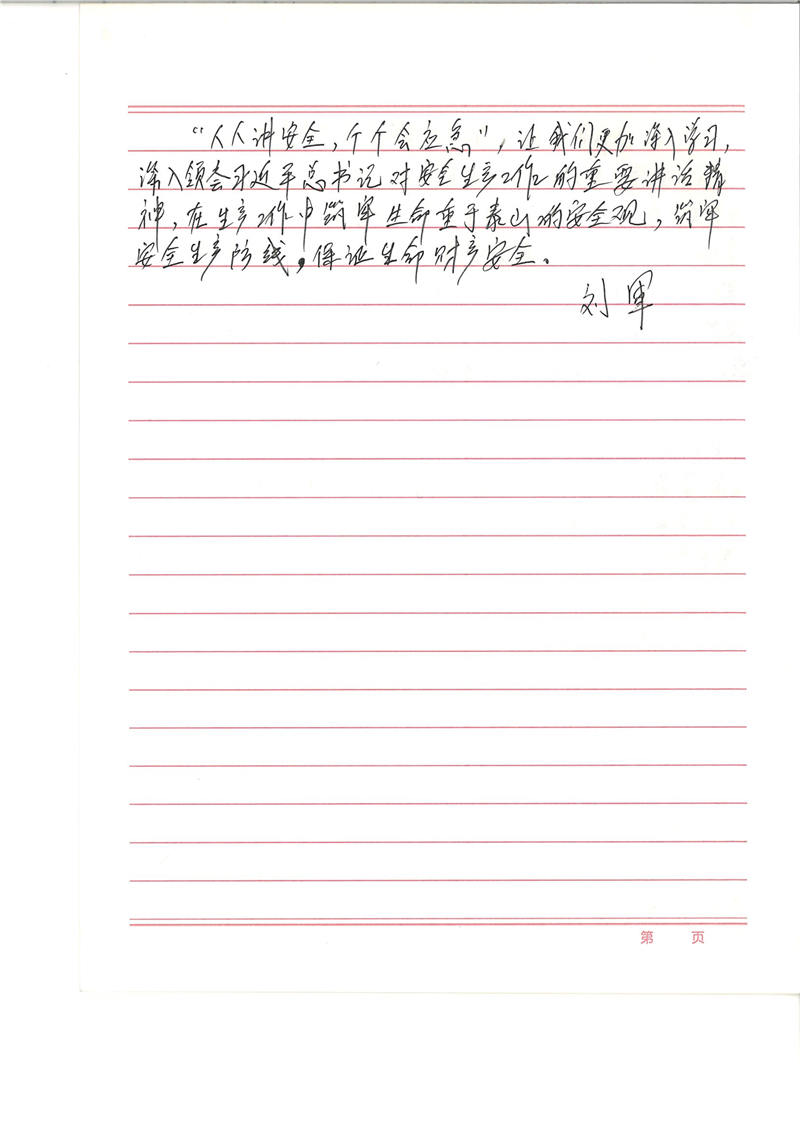 “人人讲安全，个个会应急”，让我们更加深入学习，
深入领会习近平总书记对安全生产工作的重要讲话精
神，在生产工作中筑牢生命重于泰山的安全观，筑牢
安全生产防线，保证生命财产安全。
刘军
第 页